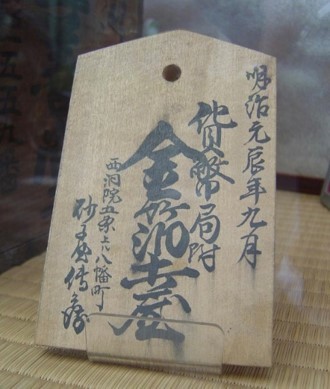 明治元辰年九月
貨幣局附
金箔土屋
西洞院五条上ル八幡町
砂屋傳兵衛